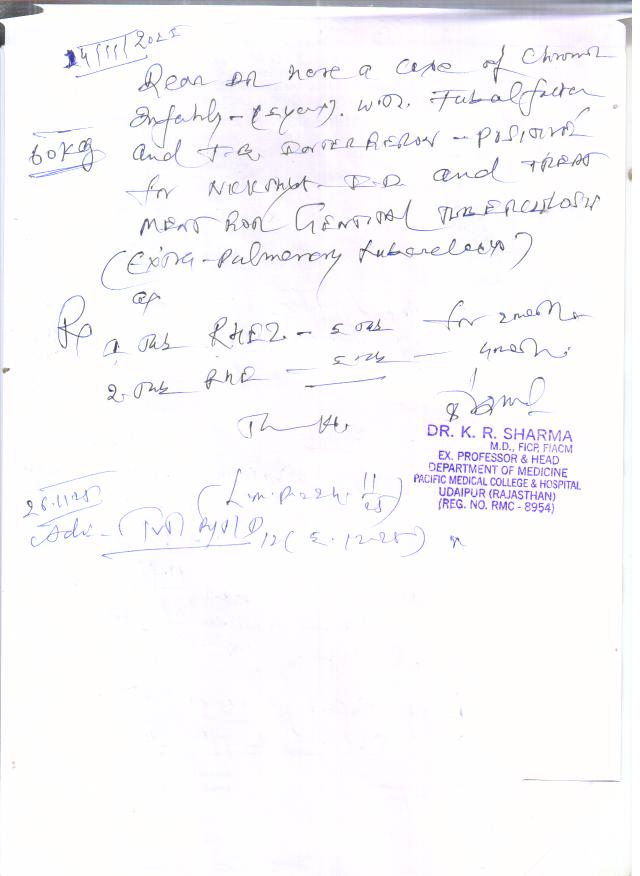 14/11/2025
Dear DR here a case of Chronic
Infertility - (5 years). with Tubal factor
60 Kg
and T.B. INTERFERON - POSITIVE
for NIKSHAY I.D. and TREAT
MENT FOR GENITAL TUBERCULOSIS
(Extra-Pulmonary tuberculosis)
Rx
1 Tab RHEZ - 5 Tab for 2 month
2. Tab RHE - 5 Tab - 4 month
DR. K. R. SHARMA
M.D., FICP, FIACM
EX. PROFESSOR & HEAD
DEPARTMENT OF MEDICINE
PACIFIC MEDICAL COLLEGE & HOSPITAL
UDAIPUR (RAJASTHAN)
(REG. NO. RMC - 8954)
(L.M.P. 22nd. 11/25)
Adv -